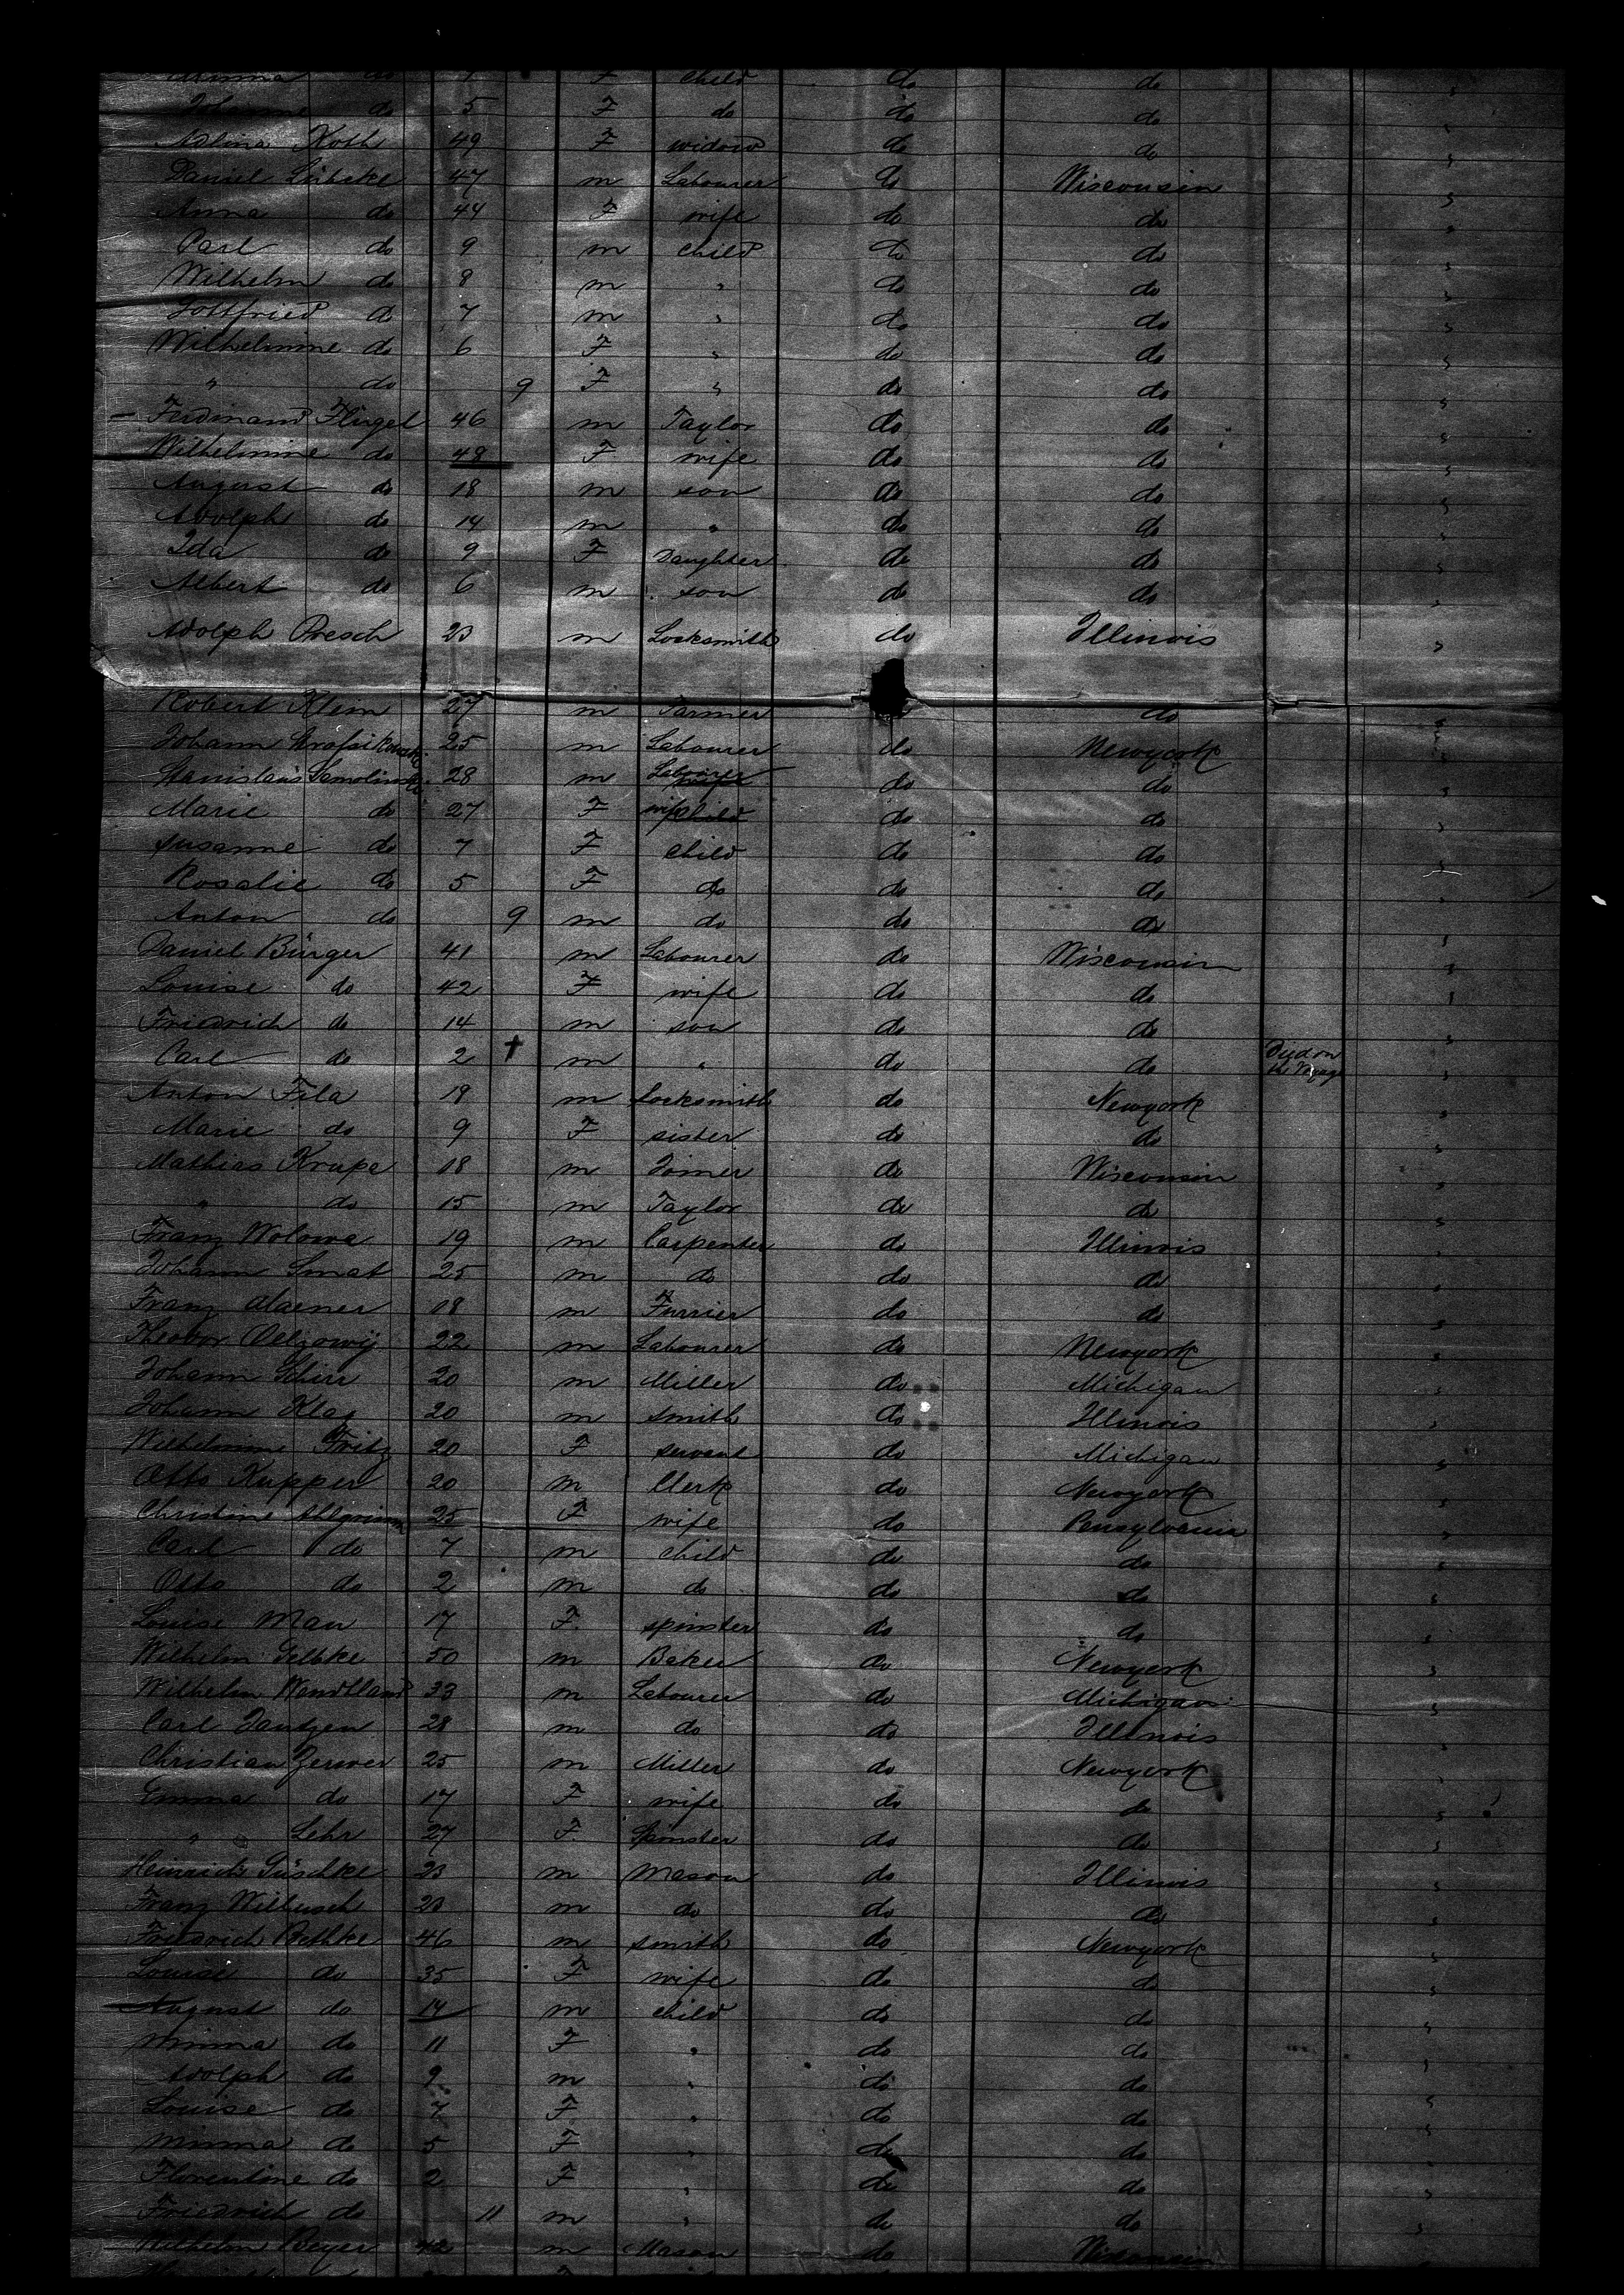 Minna do F child do do
Johanne do 5 F do do do
Adline Koth 49 F widow do do
Daniel Lübcke 47 m Labourer do Wisconsin
Anna do 44 F wife do do
Carl do 9 m child do do
Wilhelm do 8 m " do do
Gottfried do 7 m " do do
Wilhelmine do 6 F " do do
" do 9 F " do do
Ferdinand Flügel 46 m Taylor do do
Wilhelmine do 48 F wife do do
August do 18 m son do do
Adolph do 14 m " do do
Ida do 9 F Daughter do do
Albert do 6 m son do do
Adolph Presch 23 m Locksmith do Illinois
Robert Klem 27 m Farmer do
Johann 25 m Labourer do Newyork
Stanislaus Samolinski 28 m Labourer do do
Marie do 27 F wife do do
Susanne do 7 F child do do
Rosalie do 5 F do do do
Anton do 9 m do do do
Daniel Bürger 41 m Labourer do Wisconsin
Louise do 42 F wife do do
Friedrich do 14 m son do do
Carl do 2 † m " do do Died on the Voyage
Anton Fila 18 m Locksmith do Newyork
Marie do 9 F sister do do
Mathias Krupe 18 m Joiner do Wisconsin
" do 15 m Taylor do do
Franz Wolowa 19 m Carpenter do Illinois
Johann Smat 25 m do do do
Franz 18 m Furrier do do
Theodor 22 m Labourer do Newyork
Johann Schirr 20 m Miller do Michigan
Johann Klag 20 m smith do Illinois
Wilhelmine Fritz 20 F servent do Michigan
Otto Kupper 20 m Clerk do Newyork
Christine Ahlgrimm 25 F wife do Pensylvania
Carl do 7 m child do do
Otto do 2 m do do do
Louise Man 17 F. spinster do do
Wilhelm Gelbke 50 m Baker do Newyork
Wilhelm Wendtland 33 m Labourer do Michigan
Carl Jantzen 28 m do do Illinois
Christian Zerwer 25 m Miller do Newyork
Emma do 17 F wife do do
" Lehr 27 F. Spinster do do
Heinrich Güschke 23 m Mason do Illinois
Franz Wilbusch 23 m do do do
Friedrich Bethke 46 m smith do Newyork
Louise do 35 F wife do do
August do 14 m child do do
Minna do 11 F " do do
Adolph do 9 m " do do
Louise do 7 F " do do
Minna do 5 F " do do
Florentine do 2 F " do do
Friedrich do 11 m " do do
Wilhelm Beyer 42 m Mason do Wisconsin